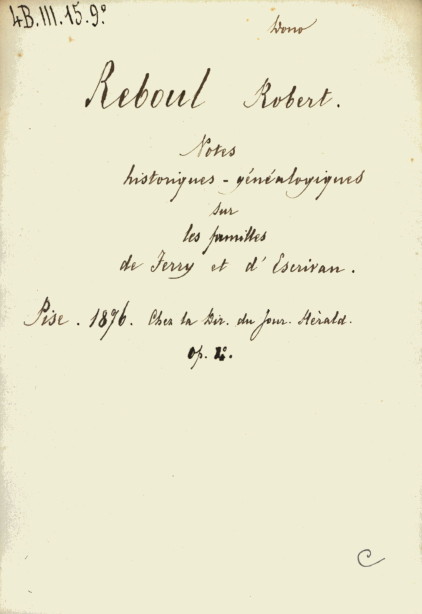 4B.III.15.9º
Dono
Reboul Robert.
Notes
historiques - généalogiques
sur
les familles
de Ferry et d'Escrivan.
Pise. 1896. Chez la Dir. du Jour. Hérald.
op. 4º.
C